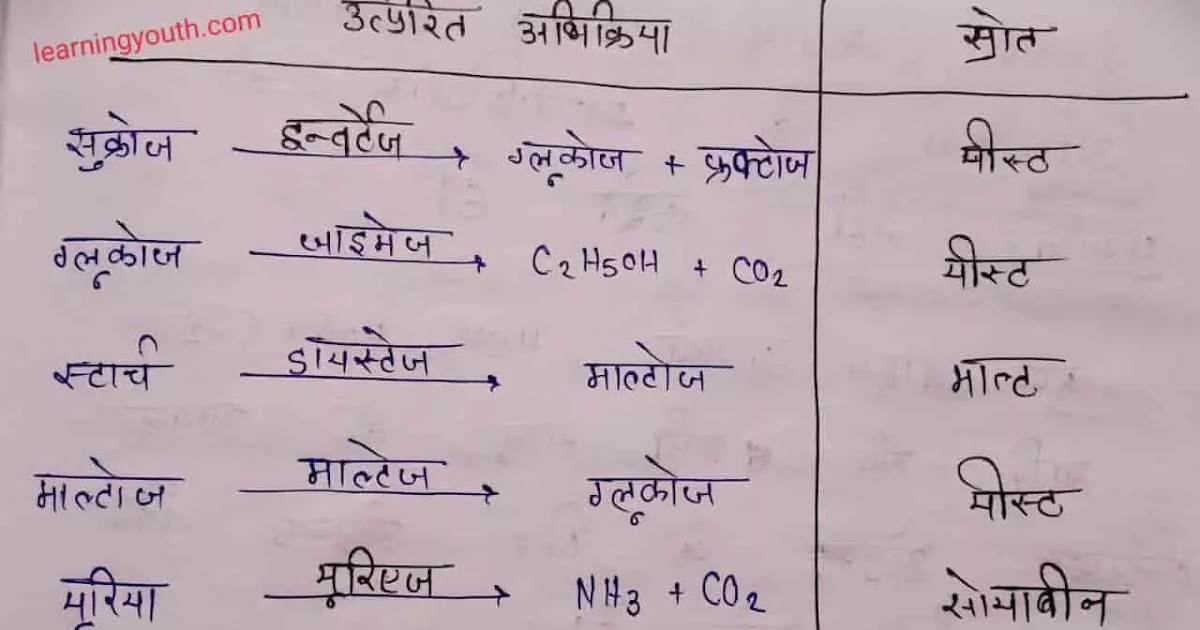 learningyouth.com
उत्प्रेरित अभिक्रिया स्रोत
सुक्रोज इन्वर्टेज → ग्लूकोज + फ्रक्टोज यीस्ट
ग्लूकोज जाइमेज → C₂H₅OH + CO₂ यीस्ट
स्टार्च डायस्टेज → माल्टोज माल्ट
माल्टोज माल्टेज → ग्लूकोज यीस्ट
यूरिया यूरिएज → NH₃ + CO₂ सोयाबीन